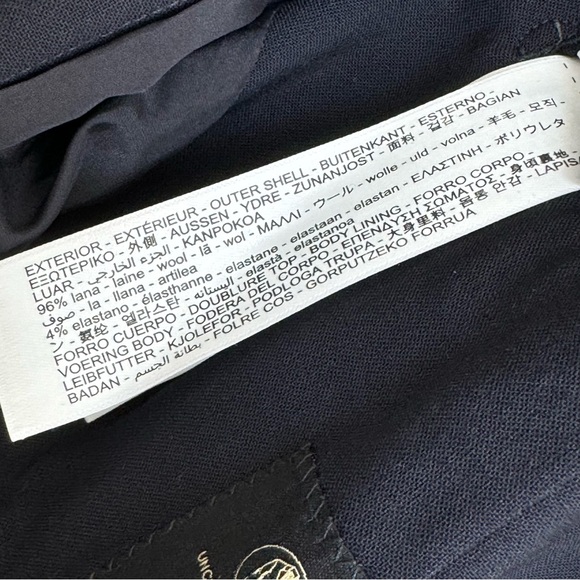 EXTERIOR - EXTÉRIEUR - OUTER SHELL - BUITENKANT - ESTERNO -
ΕΞΩΤΕΡΙΚΟ - 外側 - AUSSEN - YDRE - ZUNANJOST - 面料 - 겉감 - BAGIAN
LUAR - الجزء الخارجي - KANPOKOA
96% lana - laine - wool - lã - wol - ΜΑΛΛΙ - ウール - wolle - uld - volna - 羊毛 - 모직 -
صوف - la - llana - artilea
4% elastano - élasthanne - elastane - elastaan - elastan - ΕΛΑΣΤΙΝΗ - ポリウレタ
ン - 氨纶 - 엘라스탄 - البستانه - elastà - elastanoa
FORRO CUERPO - DOUBLURE CORPS - BODY LINING - FORRO CORPO -
VOERING BODY - FODERA DEL CORPO - ΕΠΕΝΔΥΣΗ ΣΩΜΑΤΟΣ - 身頃裏地 -
LEIBFUTTER - KJOLEFOR - PODLOGA TRUPA - 大身里料 - 몸통 안감 - LAPIS
BADAN - بطانة الجسم - FOLRE COS - GORPUTZEKO FORRUA
UNC